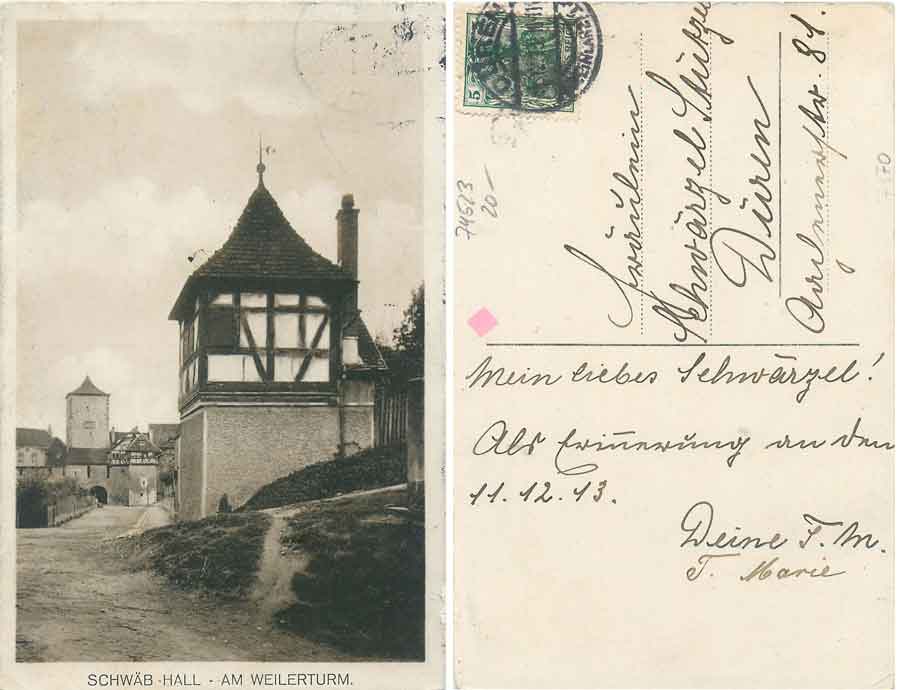 SCHWÄB·HALL - AM WEILERTURM.
5
74623
20-
70
Fräulein
Schwärzel
Düren
81.
Mein liebes Schwärzel!
Als Erinnerung an den
11.12.13.
Deine T. M.
T. Marie